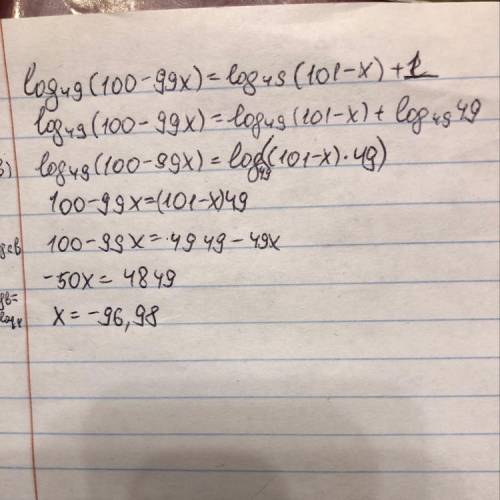 log₄₉(100-99x)=log₄₉(101-x)+1
log₄₉(100-99x)=log₄₉(101-x)+log₄₉49
log₄₉(100-99x)=log₄₉((101-x)·49)
100-99x=(101-x)49
100-99x=4949-49x
-50x=4849
x=-96,98